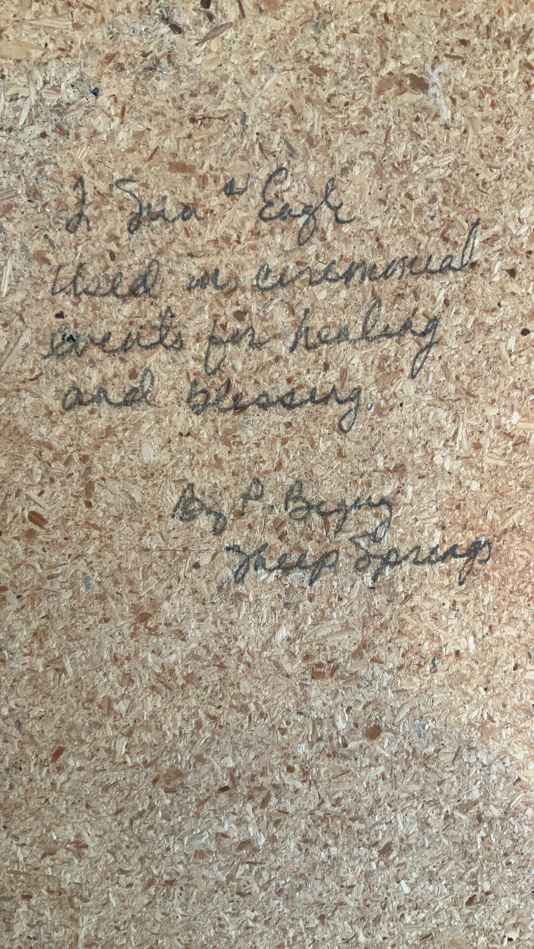 Sun & Eagle
Used in ceremonial
events for healing
and blessing.
By P. Begay
Sheep Springs